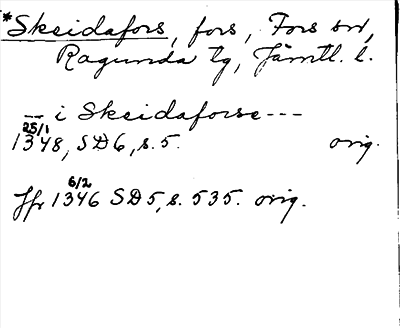 *Skeidafors, fors, Fors sn,
Ragunda tg, Jämtl. l.
— i Skeidaforse ---
25/1
1348, SD 6, s. 5. orig.
6/2
Jfr 1346 SD 5, s. 535. orig.